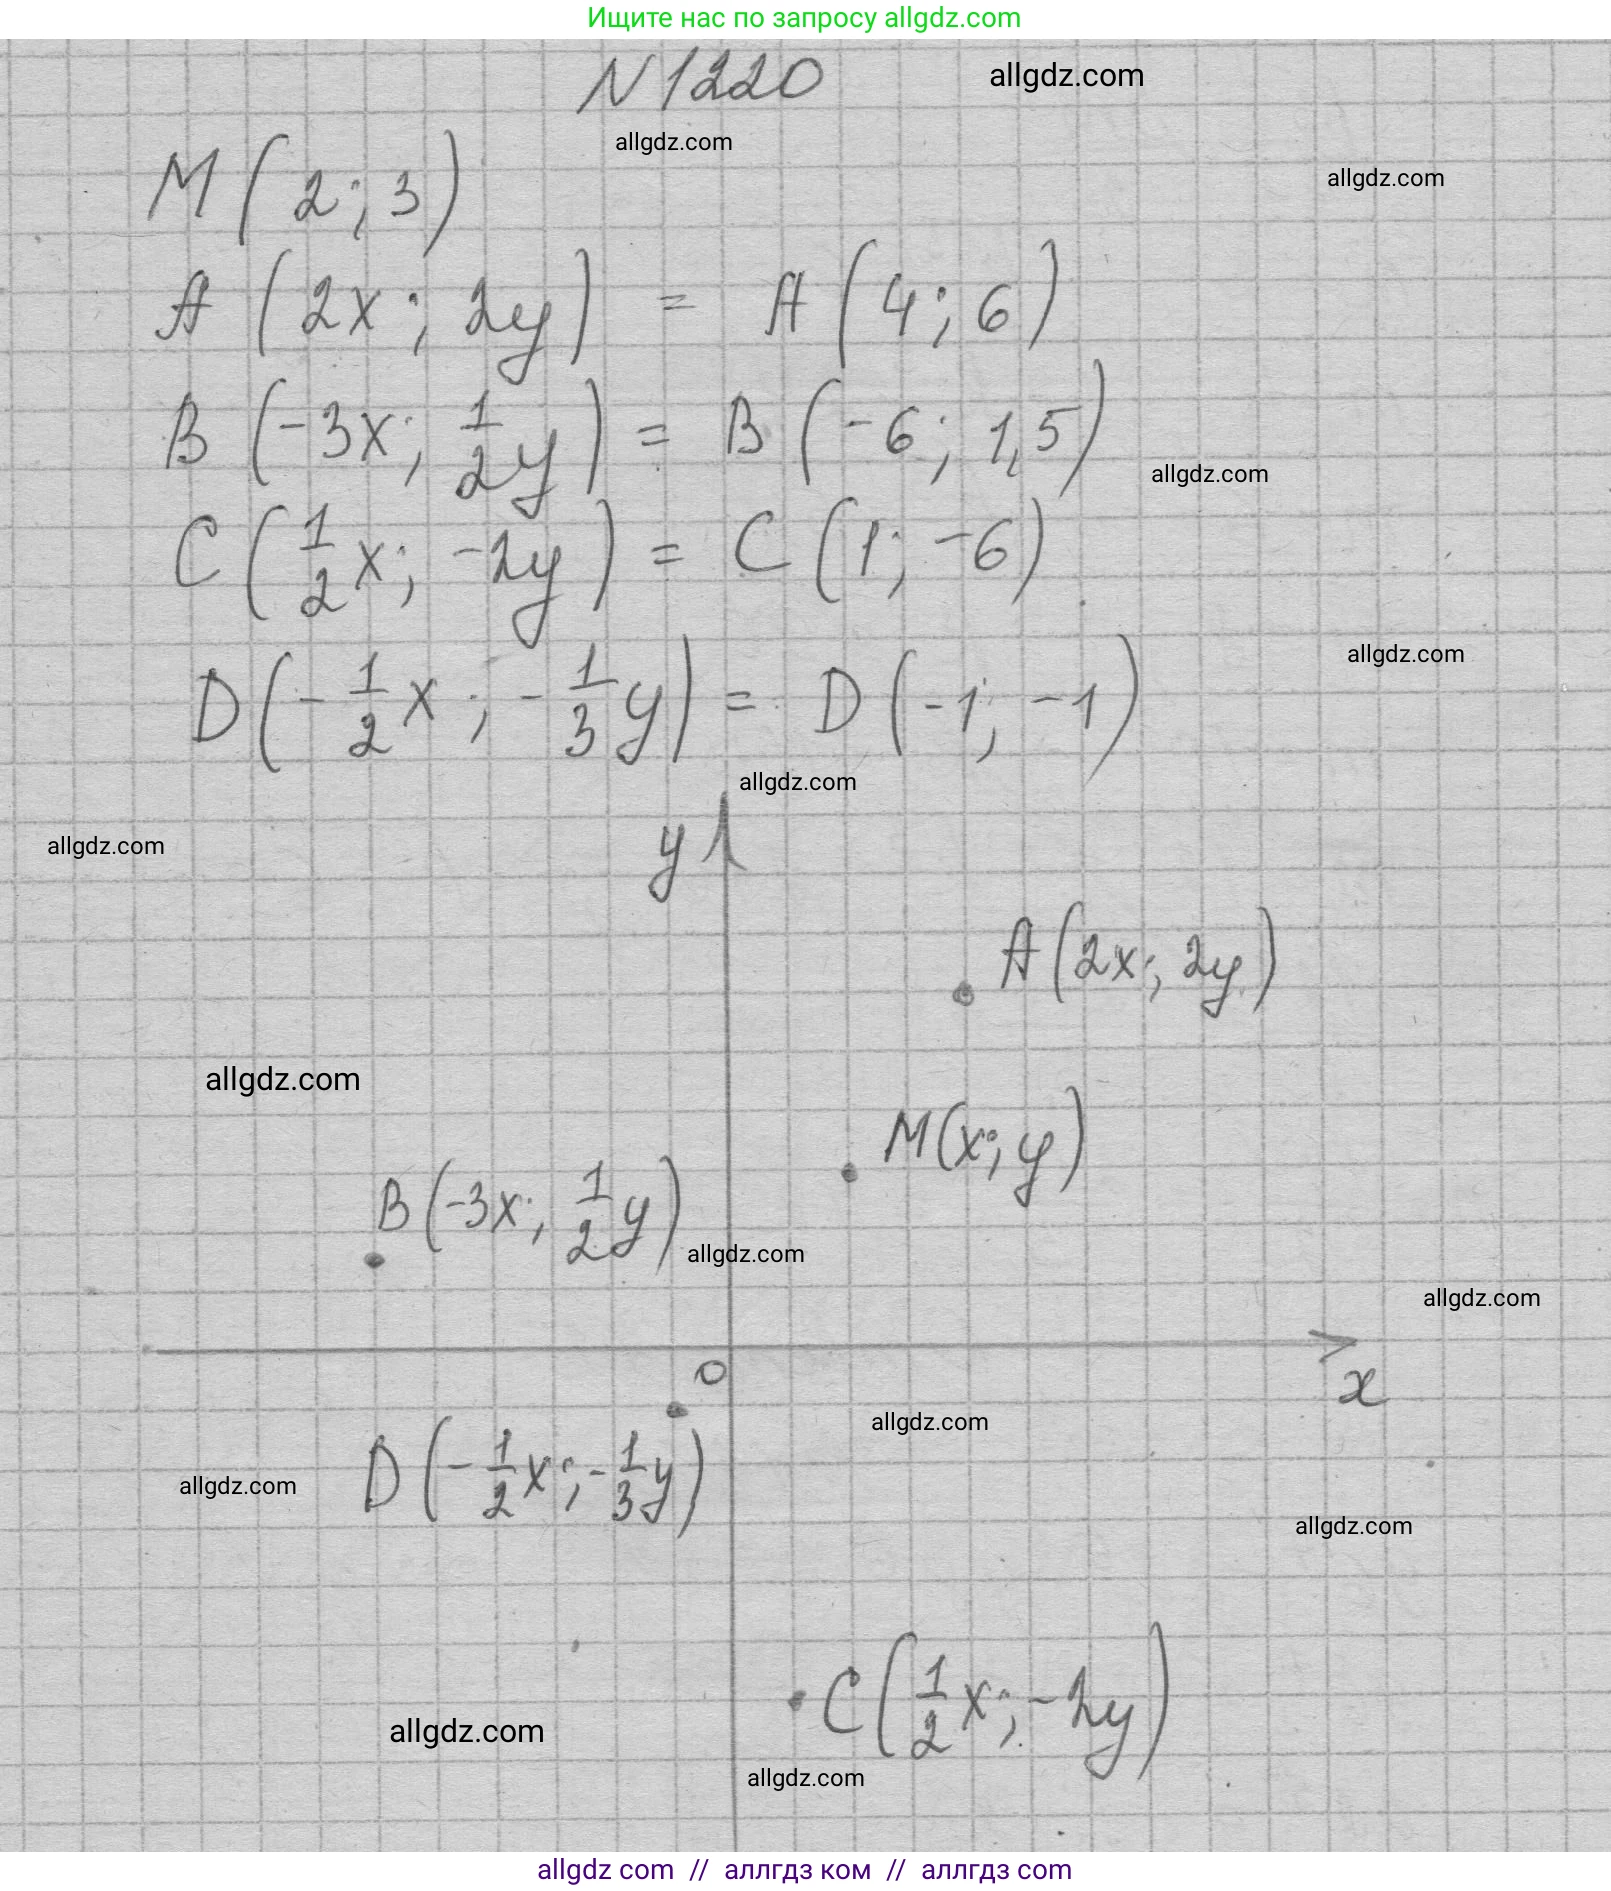 Ищите нас по запросу allgdz.com
N 1220
allgdz.com
allgdz.com
M(2; 3)
allgdz.com
A(2x; 2y) = A(4; 6)
B(-3x; 1/2 y) = B(-6; 1,5)
allgdz.com
C(1/2 x; -2y) = C(1; -6)
D(-1/2 x; -1/3 y) = D(-1; -1)
allgdz.com
allgdz.com
allgdz.com
y
A(2x; 2y)
allgdz.com
M(x; y)
B(-3x; 1/2 y)
allgdz.com
allgdz.com
0
x
allgdz.com
D(-1/2 x; -1/3 y)
allgdz.com
allgdz.com
C(1/2 x; -2y)
allgdz.com
allgdz.com
allgdz com // аллгдз ком // аллгдз com